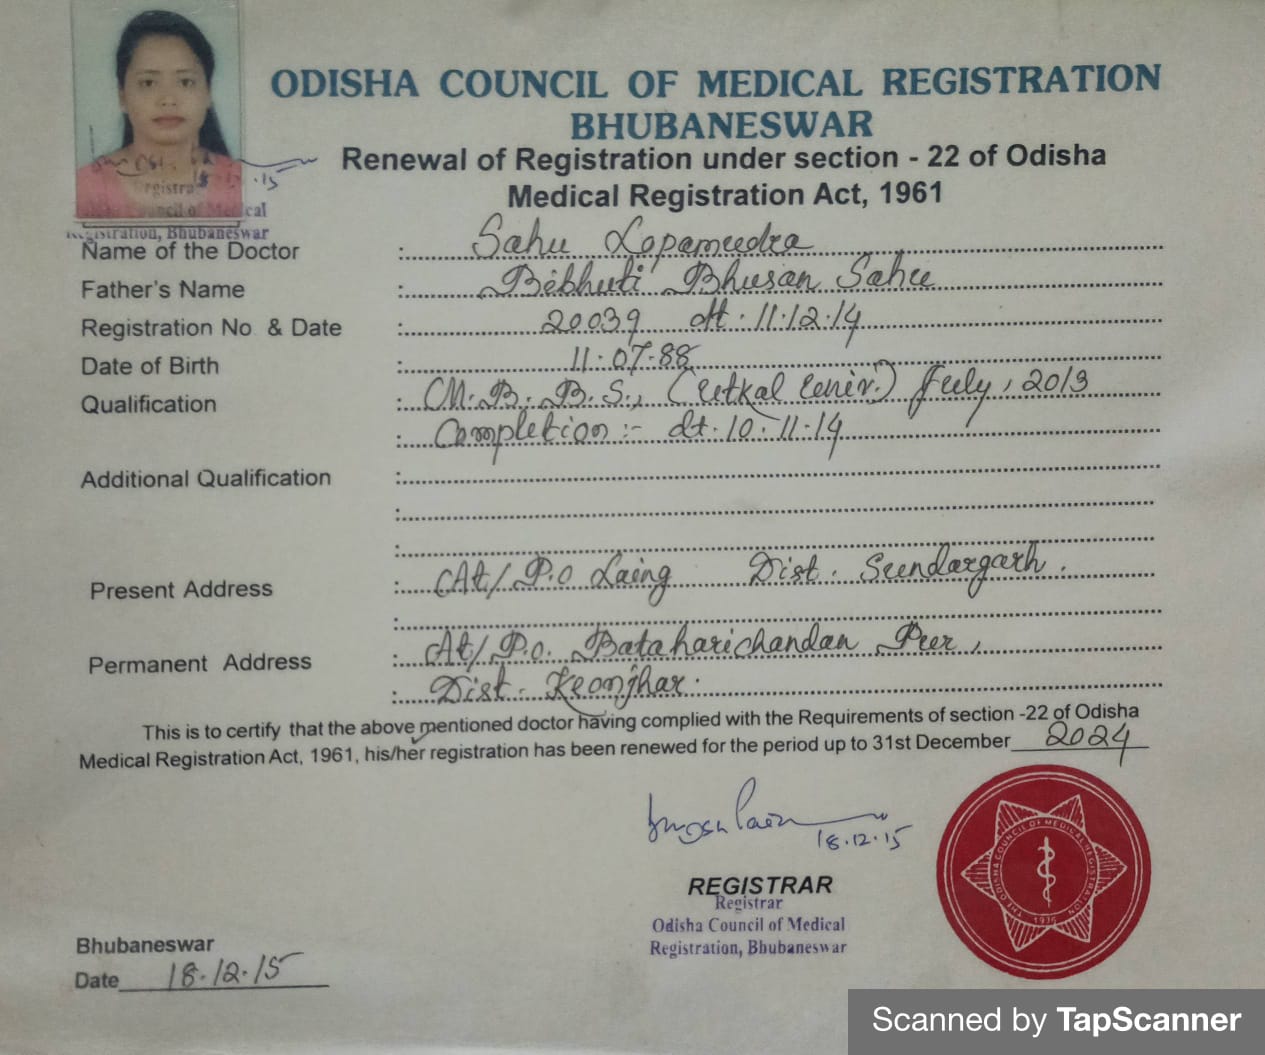 ODISHA COUNCIL OF MEDICAL REGISTRATION
BHUBANESWAR
Renewal of Registration under section - 22 of Odisha
Medical Registration Act, 1961
Registration, Bhubaneswar
Name of the Doctor : Sahu Lopamudra
Father's Name : Bibhuti Bhusan Sahu
Registration No & Date : 20039 dt. 11.12.14
Date of Birth : 11.07.88
Qualification : M.B.B.S., (Utkal Univ.) July, 2013
: Completion :- dt. 10.11.14
Additional Qualification :
:
:
Present Address : At/P.O Laing Dist. Sundargarh.
:
Permanent Address : At/P.O. Bataharichandan Pur,
: Dist. Keonjhar.
This is to certify that the above mentioned doctor having complied with the Requirements of section -22 of Odisha
Medical Registration Act, 1961, his/her registration has been renewed for the period up to 31st December 2024
18.12.15
REGISTRAR
Registrar
Odisha Council of Medical
Registration, Bhubaneswar
THE ODISHA COUNCIL OF MEDICAL REGISTRATION
1936
Bhubaneswar
Date 18.12.15
Scanned by TapScanner